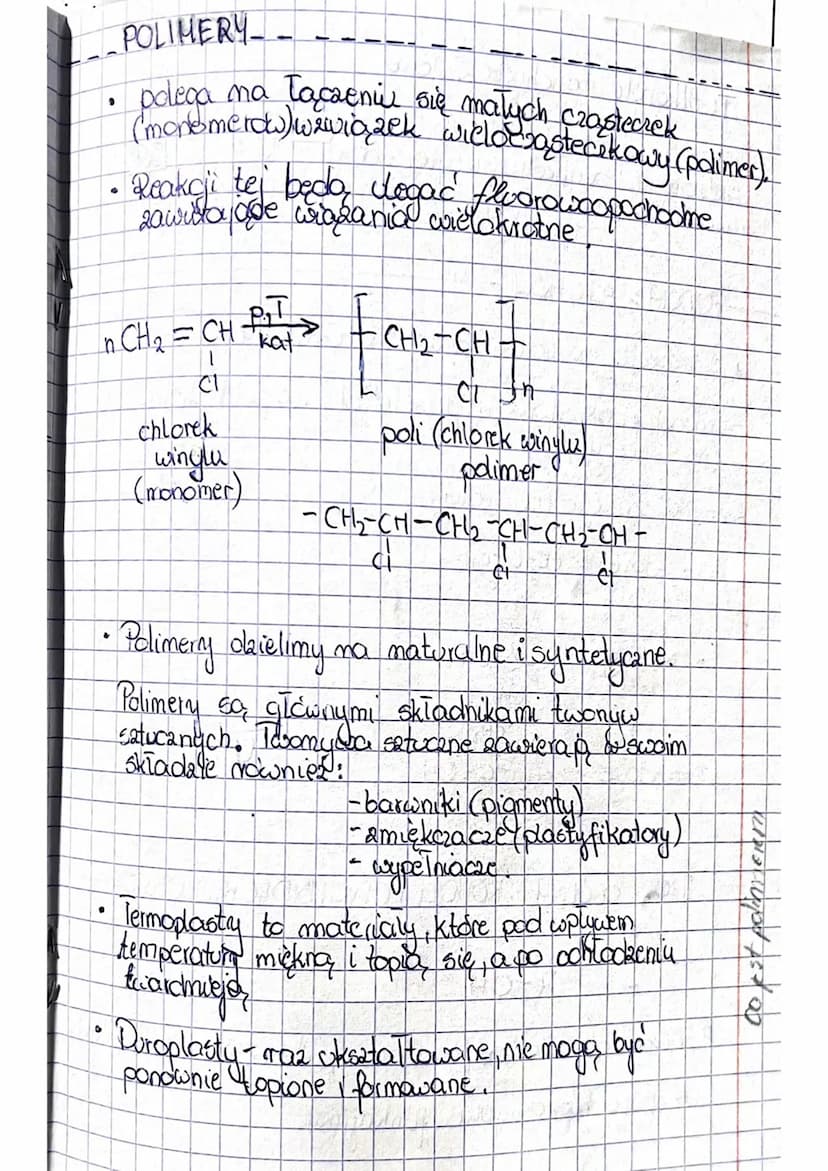 POLIMERY
• polega na łączeniu się małych cząsteczek
(monomerów) w związek wielocząsteczkowy (polimer).
• Reakcji tej będą ulegać fluorowcopochodne
zawierające wiązania wielokrotne.
nCH₂ = CH p,T kat → [ CH₂ - CH ]n
Cl Cl
chlorek
winylu
(monomer)
poli (chlorek winylu)
polimer
- CH₂-CH-CH₂-CH-CH₂-CH-
Cl Cl Cl
• Polimery dzielimy na naturalne i syntetyczne.
Polimery są głównymi składnikami tworzyw
sztucznych. Tworzywa sztuczne zawierają w swoim
składzie również:
- barwniki (pigmenty)
- zmiękczacze (plastyfikatory)
- wypełniacze.
• Termoplasty to materiały, które pod wpływem
temperatury miękną i topią się, a po ochłodzeniu
twardnieją
• Duroplasty - raz ukształtowane, nie mogą być
ponownie topione i formowane.
co jest polimerem